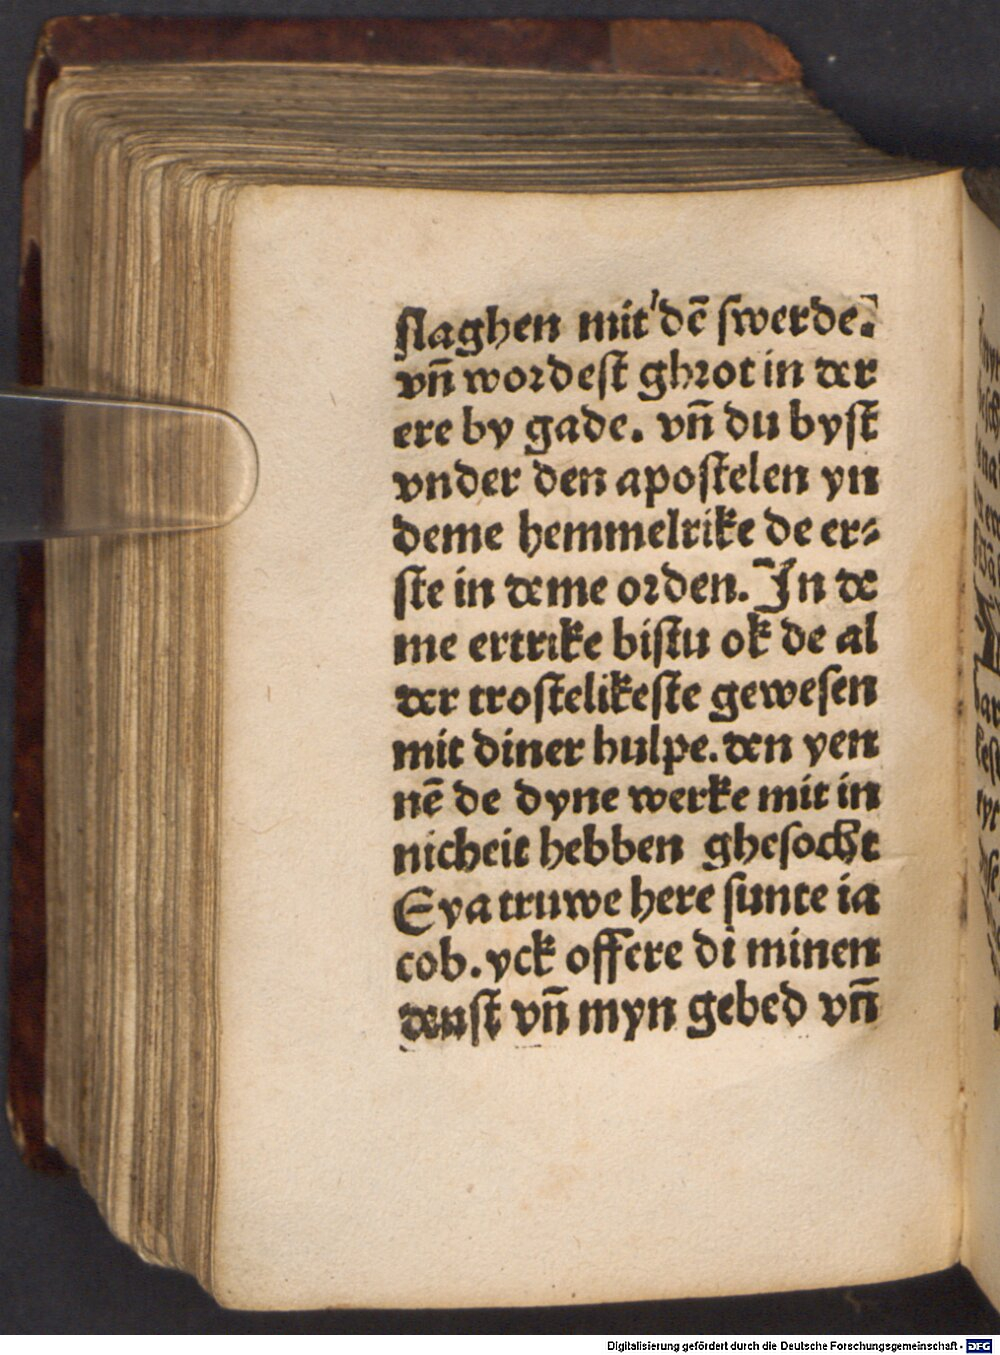 ſlaghen mit dē ſwerde.
vn̄ wordeſt ghꝛot in der
ere by gade. vn̄ du byſt
vnder den apoſtelen yn
deme hemmelrike de er⸗
ſte in deme oꝛden. In de
me ertrike biſtu ok de al
der troſtelikeſte geweſen
mit diner hulpe. den yen
nē de dyne werke mit in
nicheit hebben gheſocht
Eya truwe here ſunte ia
cob. yck offere di minen
denſt vn̄ myn gebed vn̄
Digitalisierung gefördert durch die Deutsche Forschungsgemeinschaft - DFG